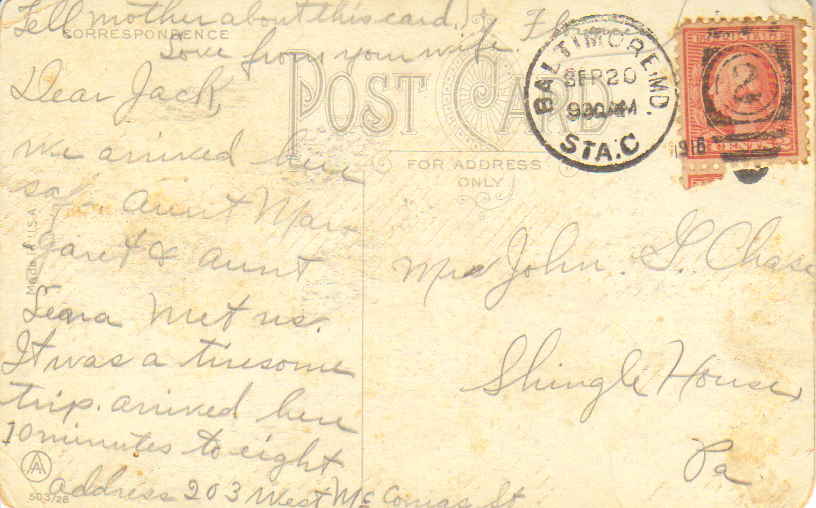 Tell mother about this card.
CORRESPONDENCE
Love from your wife.
Dear Jack,
We arrived here
safe. Aunt Mar-
garet & Aunt
Lena met us.
It was a tiresome
trip. arrived here
10 minutes to eight
address 203 West McComas St
MADE IN U.S.A
AA
503/28
POST CARD
FOR ADDRESS
ONLY
BALTIMORE, MD.
SEP 20
930AM
STA.C
1918
2
CENTS 2
Mrs John. G. Chase
Shingle House,
Pa.